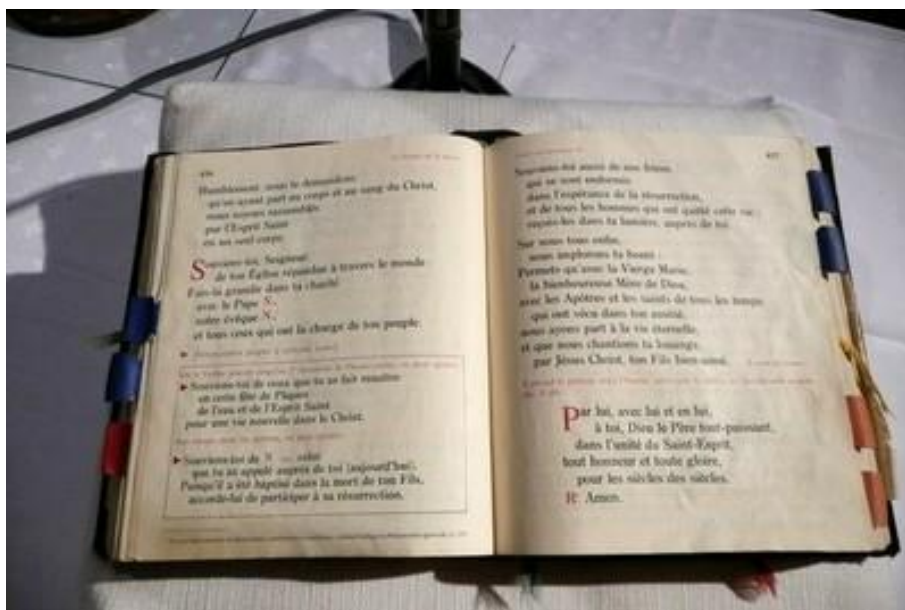 436
Humblement, nous te demandons
qu'en ayant part au corps et au sang du Christ,
nous soyons rassemblés
par l'Esprit Saint
en un seul corps.
Souviens-toi, Seigneur,
de ton Église répandue à travers le monde
Fais-la grandir dans ta charité
avec le Pape N.,
notre évêque N.,
et tous ceux qui ont la charge de ton peuple.
► Souviens-toi de ceux que tu as fait renaître
en cette fête de Pâques
de l'eau et de l'Esprit Saint
pour une vie nouvelle dans le Christ.
► Souviens-toi de N
que tu as appelé auprès de toi (aujourd'hui).
Puisqu'il a été baptisé dans la mort de ton Fils,
accorde-lui de participer à sa résurrection.
Souviens-toi aussi de nos frères
qui se sont endormis
dans l'espérance de la résurrection,
et de tous les hommes qui ont quitté cette vie :
reçois-les dans ta lumière, auprès de toi.
Sur nous tous enfin,
nous implorons ta bonté :
Permets qu'avec la Vierge Marie,
la bienheureuse Mère de Dieu,
avec les Apôtres et les saints de tous les temps
qui ont vécu dans ton amitié,
nous ayons part à la vie éternelle,
et que nous chantions ta louange,
par Jésus Christ, ton Fils bien-aimé.
Par lui, avec lui et en lui,
à toi, Dieu le Père tout-puissant,
dans l'unité du Saint-Esprit,
tout honneur et toute gloire,
pour les siècles des siècles.
R. Amen.